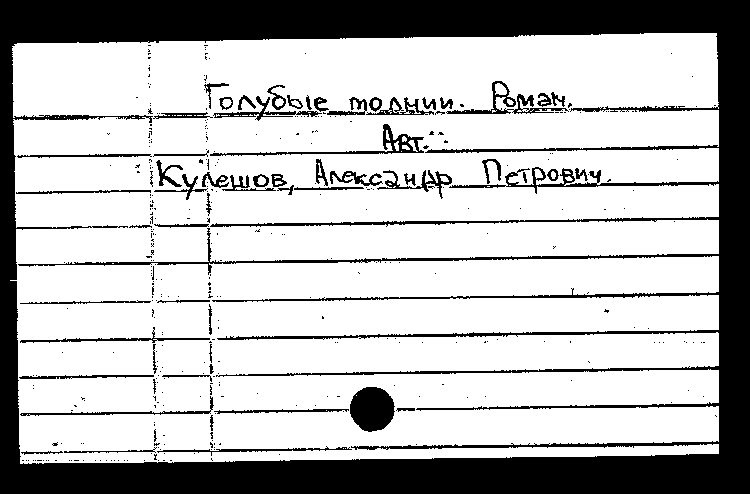 Голубые молнии. Роман.
Авт.:
Кулешов, Александр Петрович.